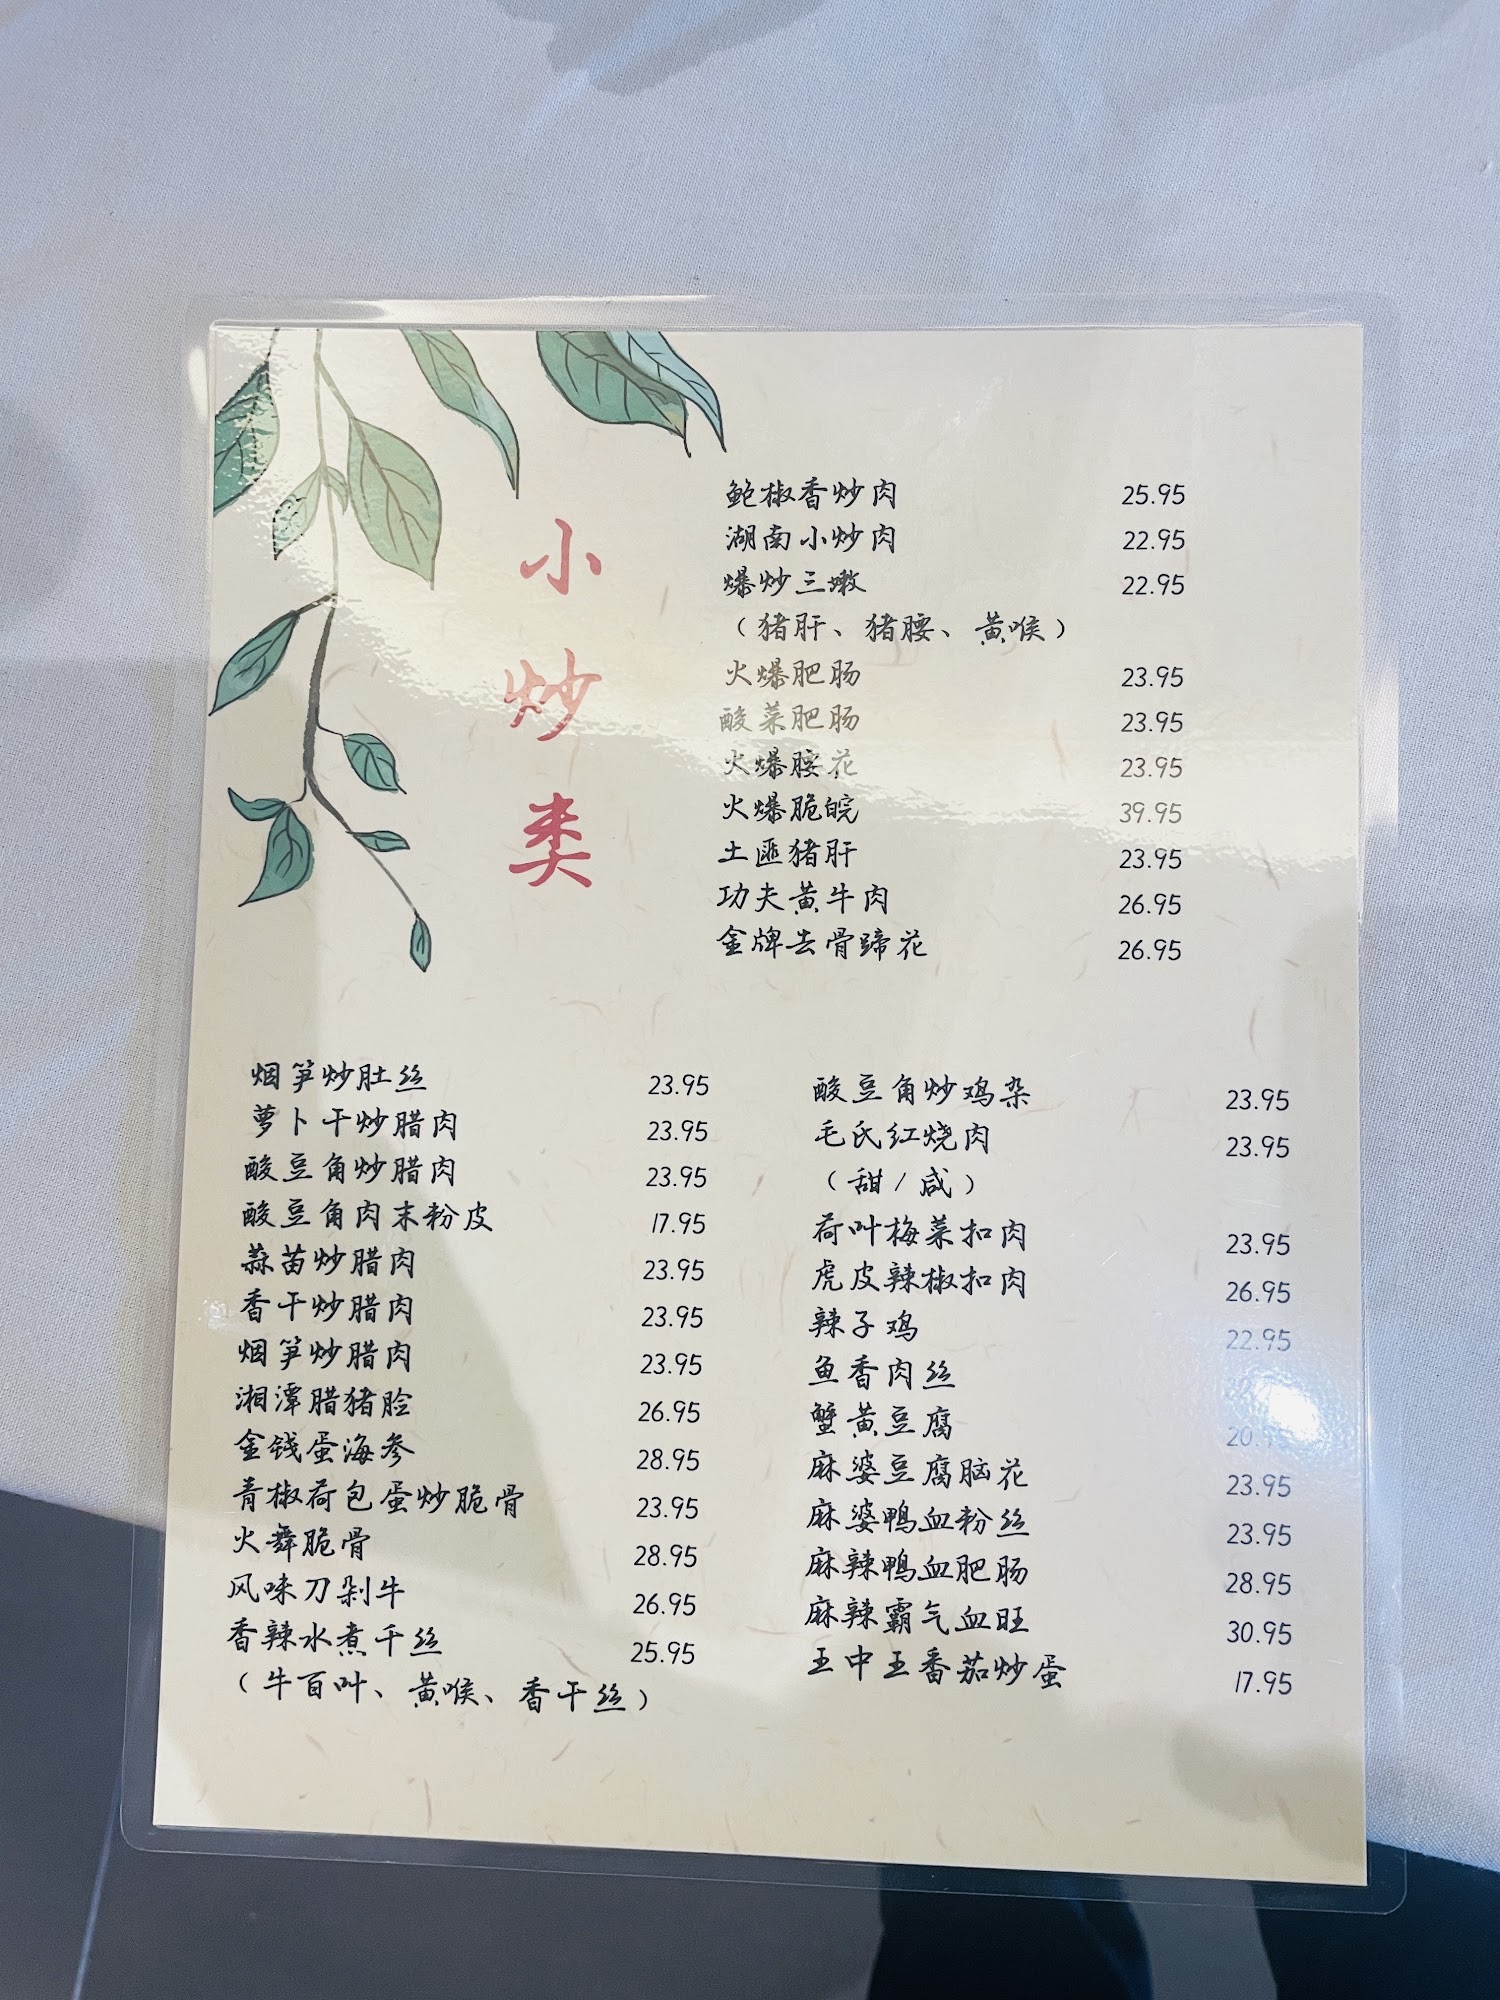 小炒类
鲍椒香炒肉 25.95
湖南小炒肉 22.95
爆炒三嫩 22.95
（猪肝、猪腰、黄喉）
火爆肥肠 23.95
酸菜肥肠 23.95
火爆腰花 23.95
火爆脆皖 39.95
土匪猪肝 23.95
功夫黄牛肉 26.95
金牌去骨蹄花 26.95
烟笋炒肚丝 23.95
萝卜干炒腊肉 23.95
酸豆角炒腊肉 23.95
酸豆角肉末粉皮 17.95
蒜苗炒腊肉 23.95
香干炒腊肉 23.95
烟笋炒腊肉 23.95
湘潭腊猪脸 26.95
金钱蛋海参 28.95
青椒荷包蛋炒脆骨 23.95
火舞脆骨 28.95
风味刀剁牛 26.95
香辣水煮千丝 25.95
（牛百叶、黄喉、香干丝）
酸豆角炒鸡杂 23.95
毛氏红烧肉 23.95
（甜/咸）
荷叶梅菜扣肉 23.95
虎皮辣椒扣肉 26.95
辣子鸡 22.95
鱼香肉丝
蟹黄豆腐
麻婆豆腐脑花 23.95
麻婆鸭血粉丝 23.95
麻辣鸭血肥肠 28.95
麻辣霸气血旺 30.95
王中王番茄炒蛋 17.95